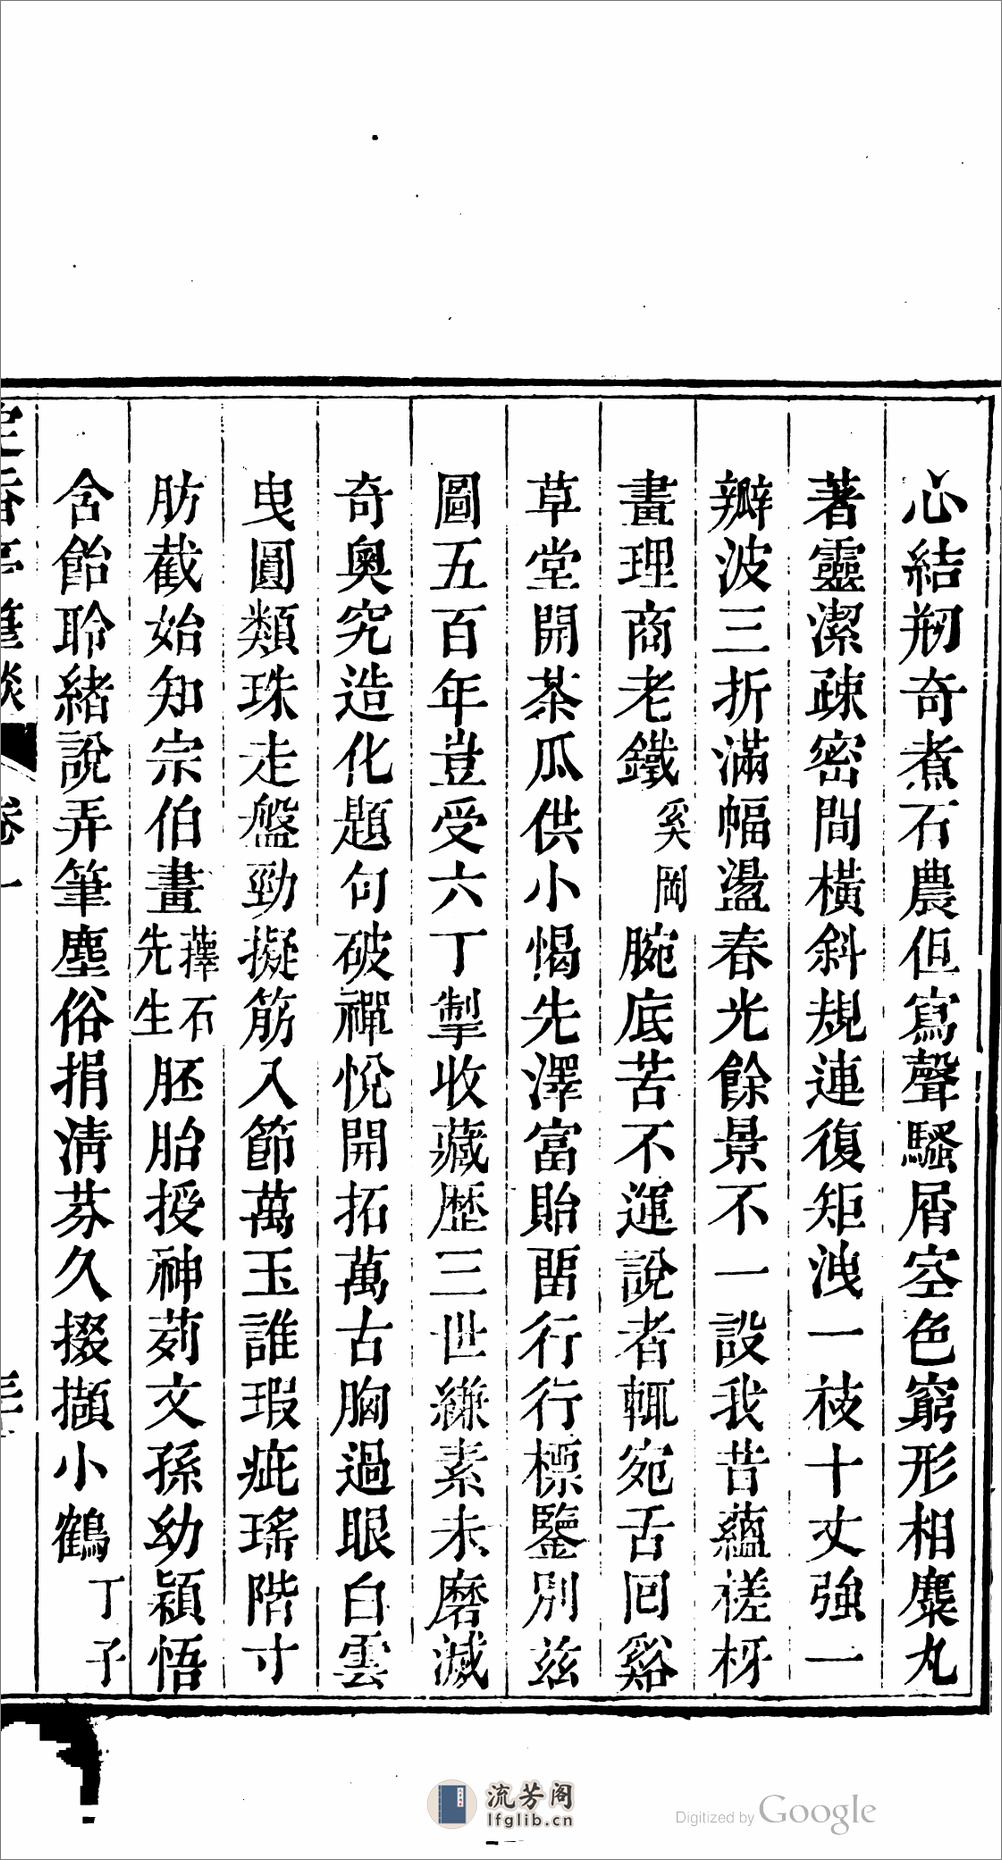 心結剏奇煮石農但寫聲騷屑空色窮形相麋丸
著靈潔疎密間橫斜規連復矩洩一枝十丈強一
瓣波三折滿幅盪春光餘景不一設我昔蘊槎枒
畫理商老鐵奚岡腕底苦不運說者輒宛舌回谿
草堂開茶瓜供小愒先澤富貽畱行行標鑒別茲
圖五百年豈受六丁掣收藏歷三世縑素未磨滅
奇奧究造化題句破禪悅開拓萬古胸過眼白雲
曳圓類珠走盤勁擬筋入節萬玉誰瑕疵瑤階寸
肪截始知宗伯畫蘀石先生胚胎授神茢文孫幼穎悟
含飴聆緒說弄筆塵俗捐淸芬久掇擷小鶴丁子
定香亭筆談 卷一
流芳阁
lfglib.cn
Digitized by Google